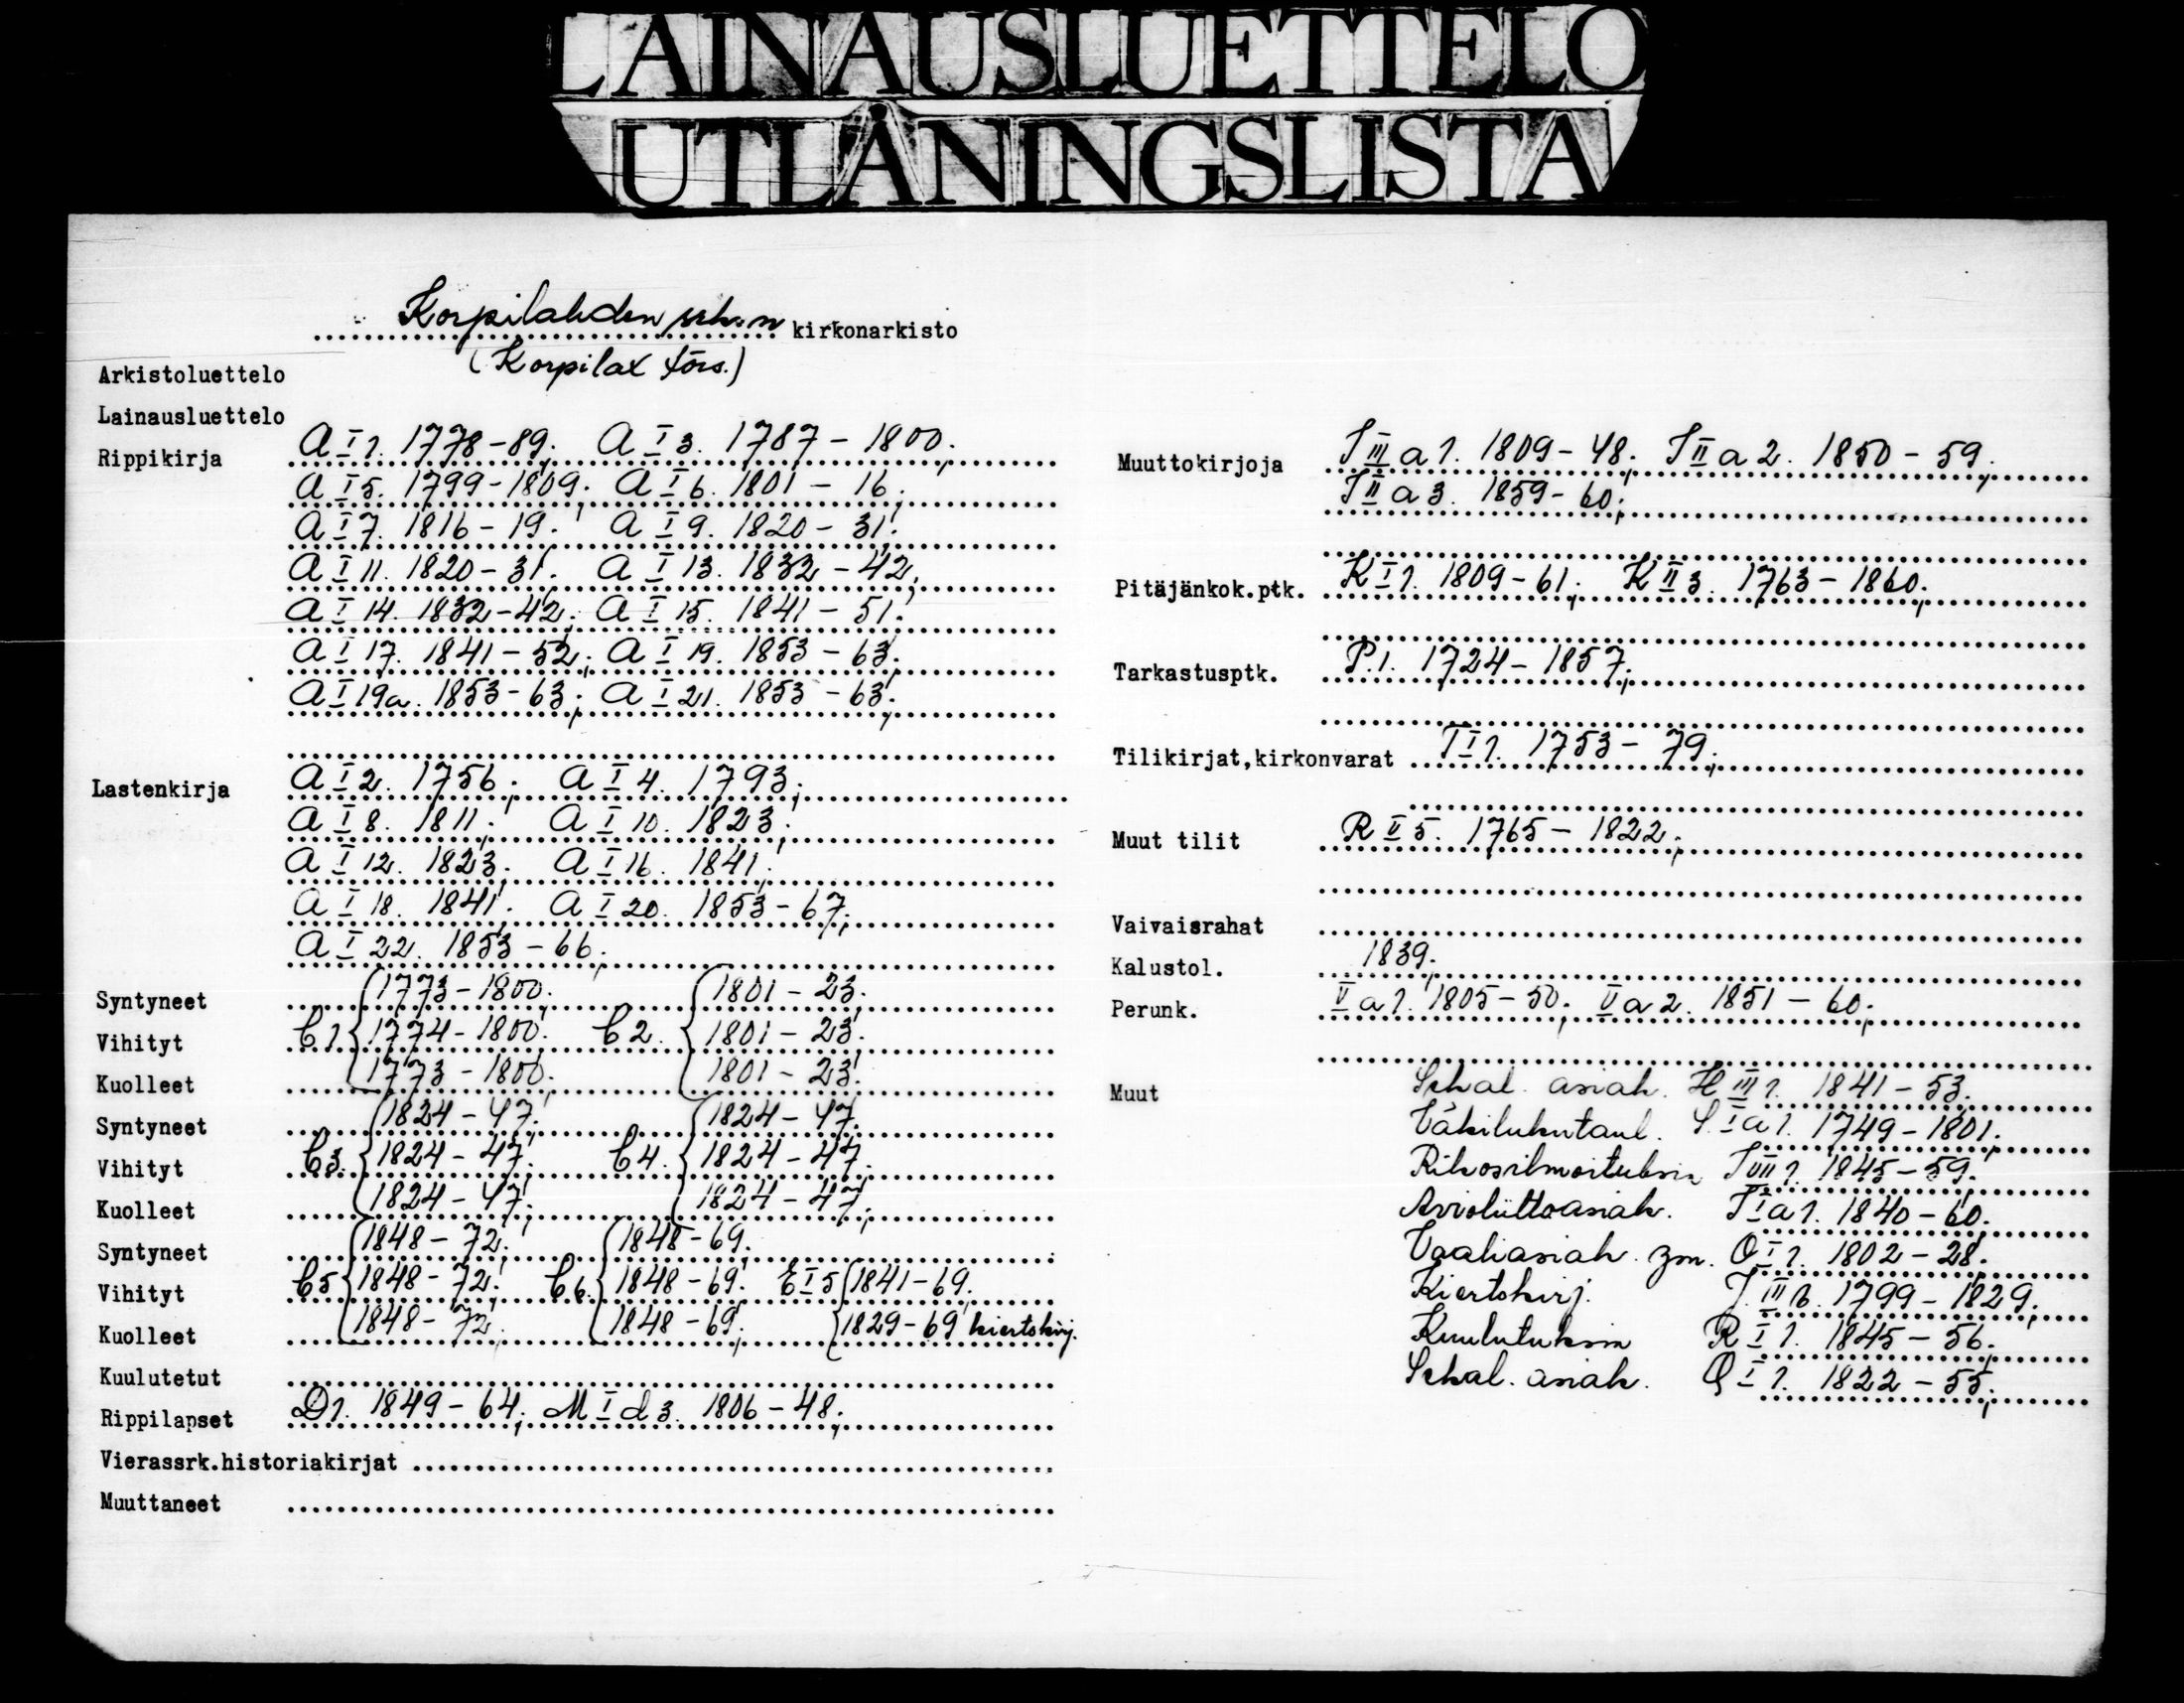 LAINAUSLUETTELO
UTLÅNINGSLISTA
Korpilahden srk:n kirkonarkisto
(Korpilax förs.)
Arkistoluettelo
Lainausluettelo
Rippikirja A I 1. 1778-89; A I 3. 1787-1800;
A I 5. 1799-1809; A I 6. 1801-16;
A I 7. 1816-19; A I 9. 1820-31;
A I 11. 1820-31; A I 13. 1832-42;
A I 14. 1832-42; A I 15. 1841-51;
A I 17. 1841-52; A I 19. 1853-63;
A I 19a. 1853-63; A I 21. 1853-63;
Lastenkirja A I 2. 1756; A I 4. 1793;
A I 8. 1811; A I 10. 1823;
A I 12. 1823; A I 16. 1841;
A I 18. 1841; A I 20. 1853-67;
A I 22. 1853-66;
Syntyneet 1773-1800; 1801-23;
Vihityt C1 1774-1800; C2. 1801-23;
Kuolleet 1773-1800; 1801-23;
Syntyneet 1824-47; 1824-47;
Vihityt C3. 1824-47; C4. 1824-47;
Kuolleet 1824-47; 1824-47;
Syntyneet 1848-72; 1848-69;
Vihityt C5 1848-72; C6. 1848-69; E I 5 1841-69;
Kuolleet 1848-72; 1848-69; 1829-69 kiertokirj.
Kuulutetut
Rippilapset D1. 1849-64; M I d 3. 1806-48;
Vierassrk.historiakirjat
Muuttaneet
Muuttokirjoja J III a 1. 1809-48; J II a 2. 1850-59;
J II a 3. 1859-60;
Pitäjänkok.ptk. K I 1. 1809-61; K II 3. 1763-1860;
Tarkastusptk. P.1. 1724-1857;
Tilikirjat,kirkonvarat T I 1. 1753-79;
Muut tilit R II 5. 1765-1822;
Vaivaisrahat
Kalustol. 1839;
Perunk. V a 1. 1805-50; V a 2. 1851-60;
Muut Sekal. asiak. H III 1. 1841-53;
Väkilukutaul. I a 1. 1749-1801;
Rikosilmoituksia J VIII 1. 1845-59;
Avioliittoasiak. I a 1. 1840-60;
Vaaliasiak. ym. O I 1. 1802-28;
Kiertokirj. J. III b. 1799-1829;
Kuulutuksia R I 1. 1845-56;
Sekal. asiak. Q I 1. 1822-55;